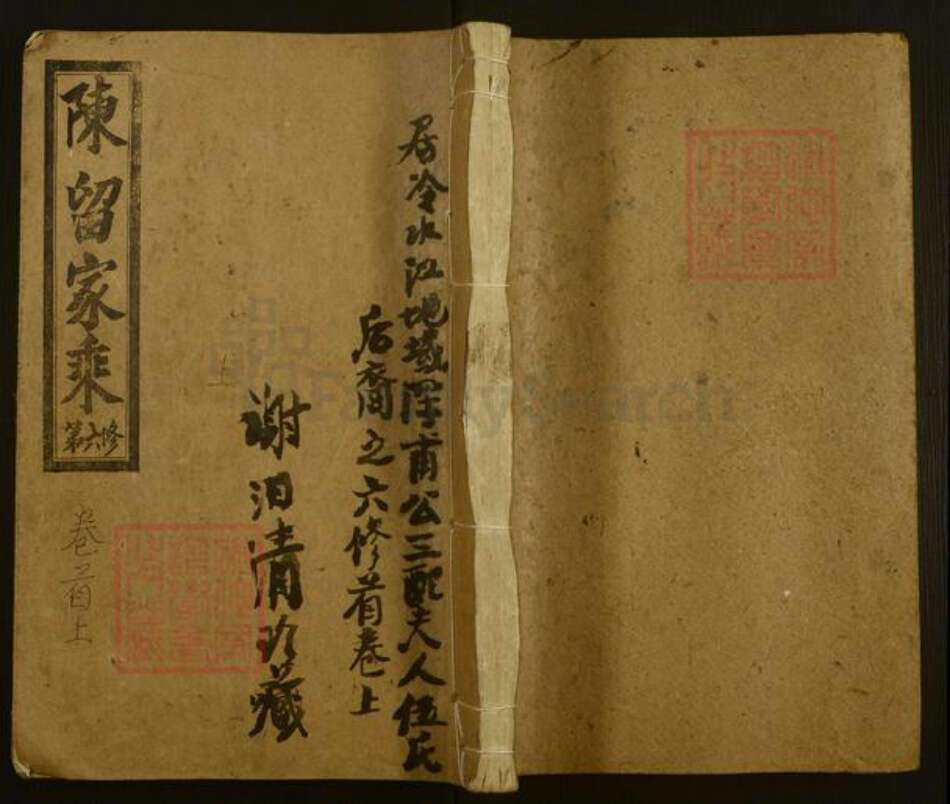 居冷水江地域浑甫公三配夫人伍氏
后裔之六修首卷上
谢汨清珍藏
陳留家乘
第六修
卷首上
FamilySearch